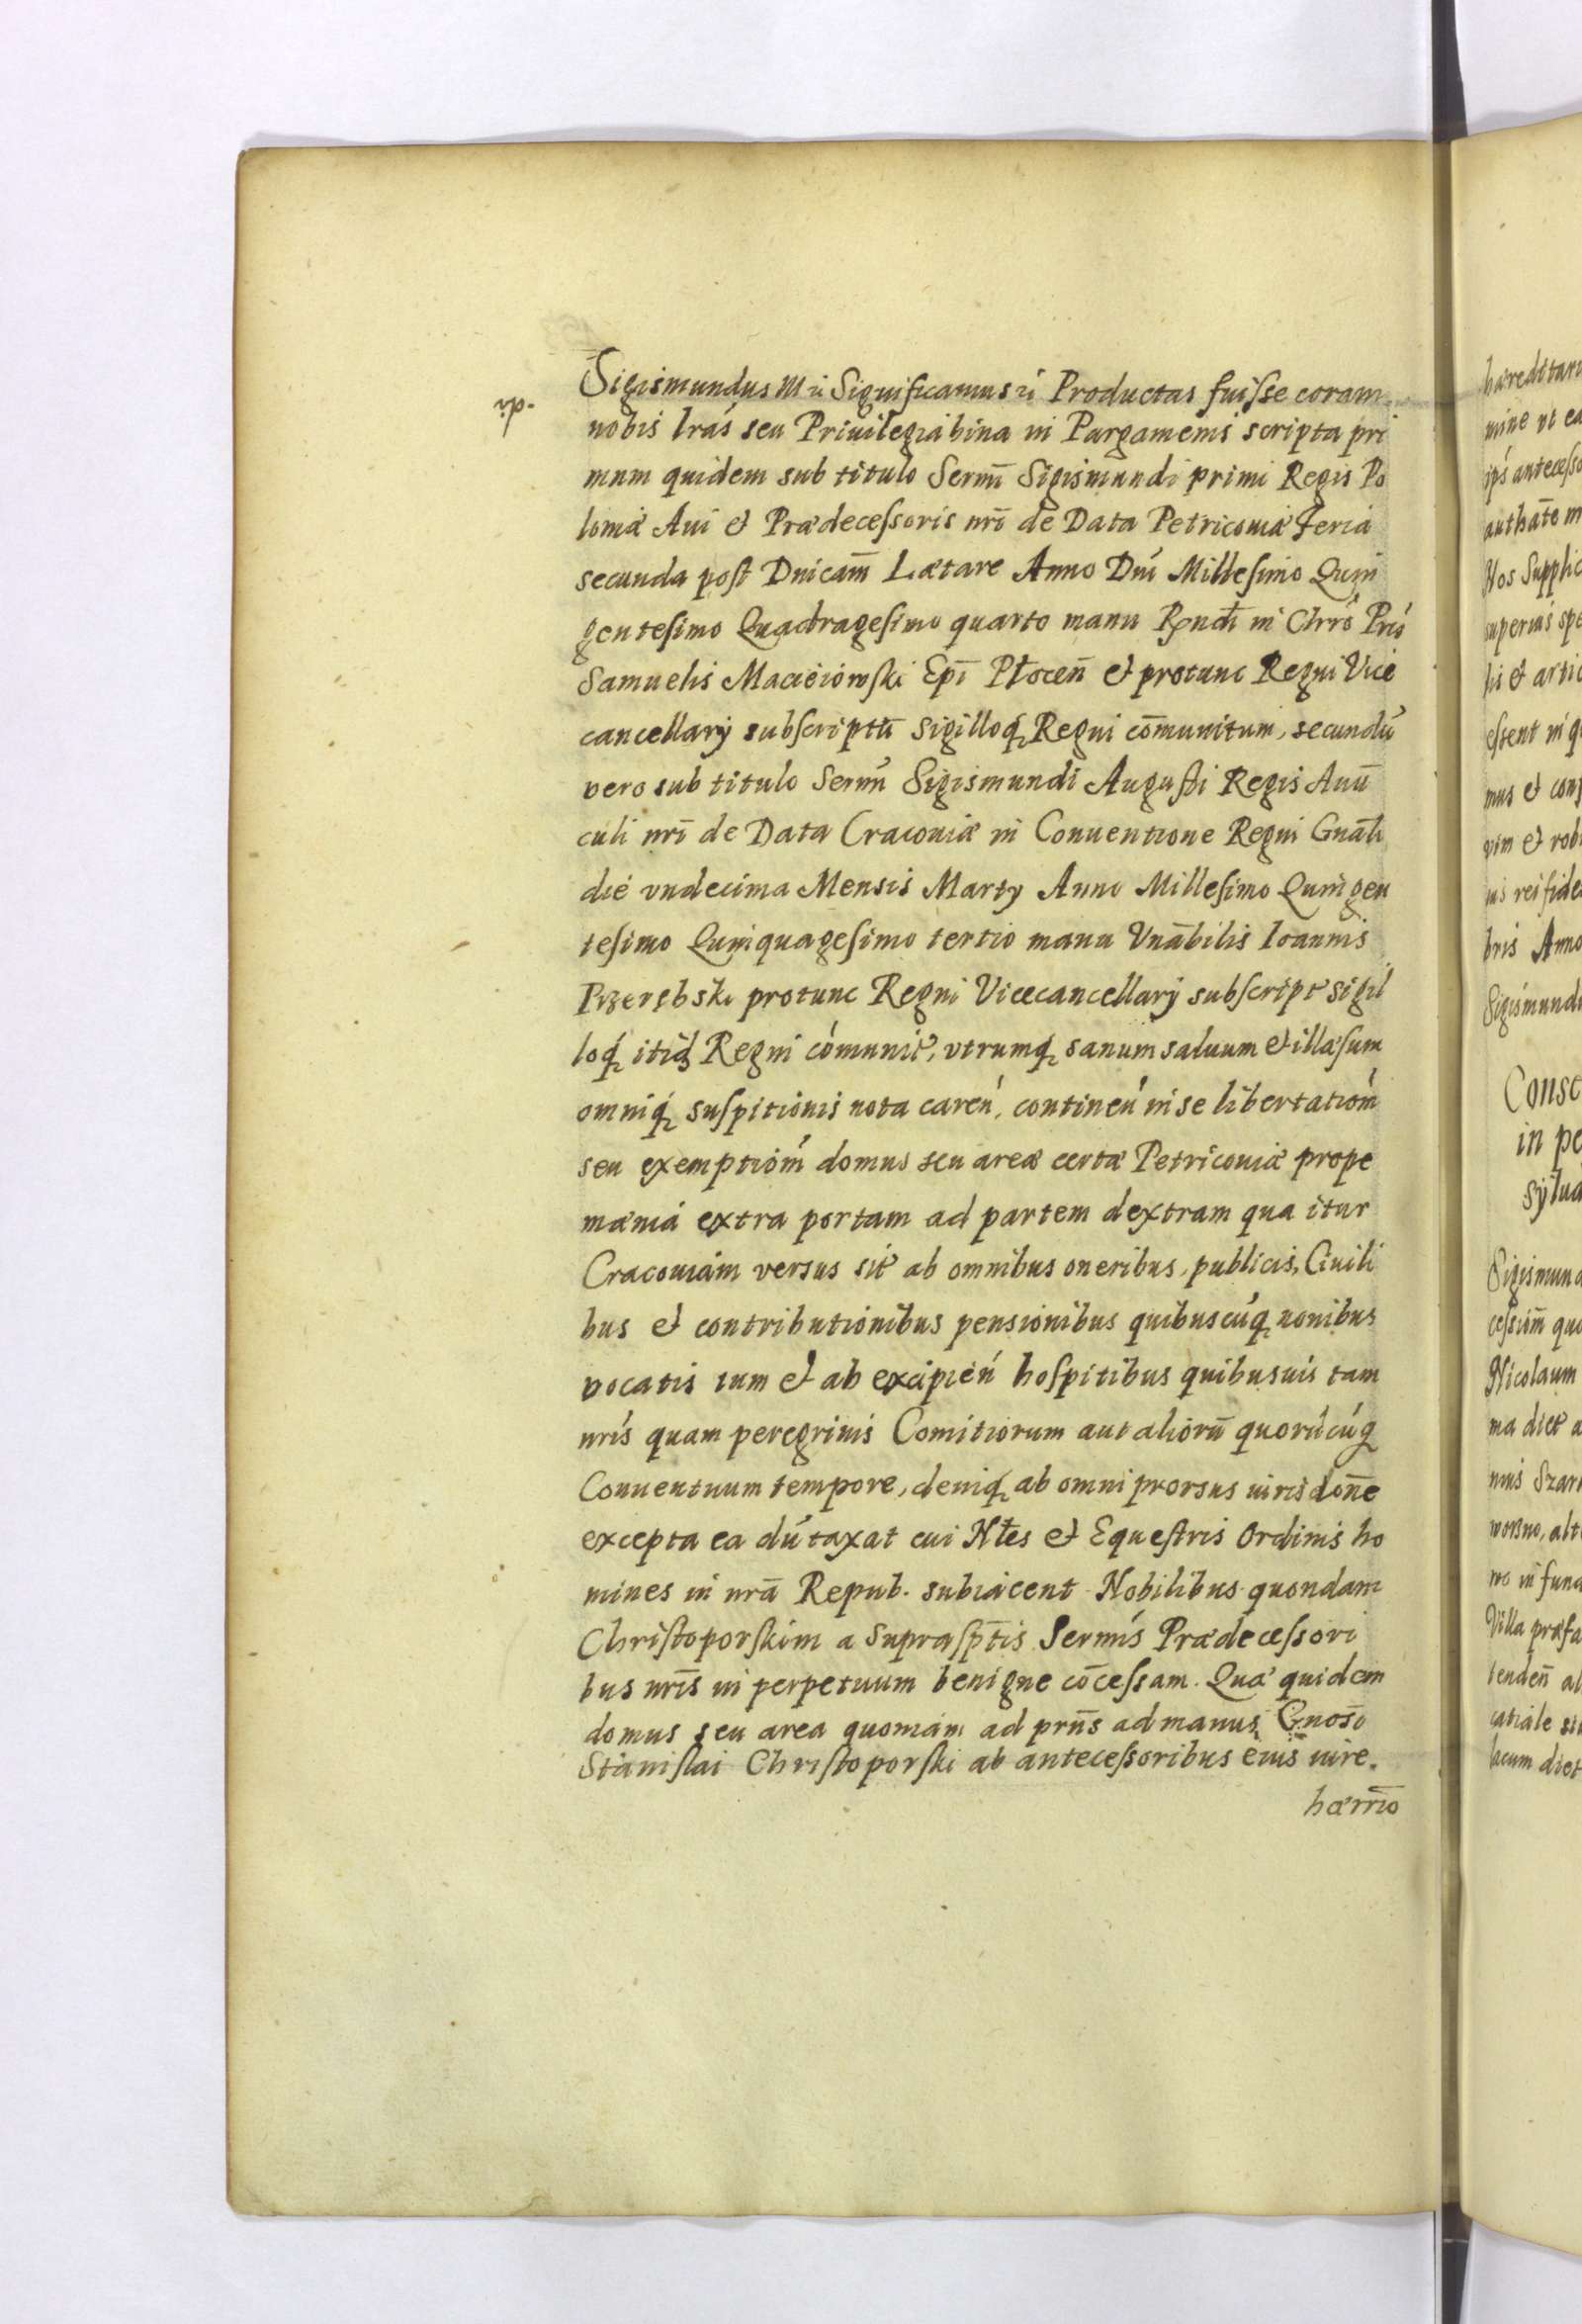 Sigismundus III ec Significamus ec Productas fuiſse coram
nobis lras seu Priuilegia bina in Pargamenis scripta pri
mum quidem sub titulo Sermi Sigismundi primi Regis Po
loniæ Aui et Prædeceſsoris nrī de Data Petricouiæ Feria
secunda poſt Dnicam̄ Lætare Anno Dni Milleſimo Quin
genteſimo Quadrageſimo quarto manu Rndi in Chrō Pris
Samuelis Macieiowſki Epī Płocen̄ et protunc Regni Vice
cancellarÿ subſcriptū sigilloq Regni cōmunitum, secundū
vero sub titulo Sermi Sigismundi Auguſti Regis Auū
culi nrī de Data Cracouiæ in Conuentione Regni Gnāli
die vndecima Mensis Martÿ Anno Milleſimo Quingen
teſimo Quinquageſimo tertio manu Vnābilis Ioannis
Przerębski protunc Regni Vicecancellarÿ subſcript sigil
loq itidē Regni cōmunit, vtrumq sanum saluum et illæſum
omniq suſpitionis nota caren, continen in se libertatiom
seu exemptiom domus seu areæ certæ Petricouiæ prope
mænia extra portam ad partem dextram qua itur
Cracouiam versus sit ab omnibus oneribus, publicis, Ciuili
bus et contributionibus pensionibus quibuscūq nonibus
vocatis tum et ab excipien hoſpitibus quibusuis tam
nris quam peregrinis Comitiorum aut aliorū quorūcūq
Conuentuum tempore, deniq ab omni prorsus iurisdōne
excepta ea dūtaxat cui Nłes et Equeſtris Ordinis ho
mines in nrā Repub. subiacent Nobilibus quondam
Chriſtoporſkim a supraſptis Sermis Prædeceſsori
bus nrīs in perpetuum benigne cōceſsam. Quæ quidem
domus seu area quoniam ad prn̄s ad manus Gnosi
Staniſlai Chriſtoporſki ab anteceſsoribus eius iure
hærrio
hæreditari
mine vt ea
ips anteceſso
authāte m
Nos Supplic
superius spe
lis et artic
eſsent in q
mus et con
vim et rob
ius rei fide
bris Anno
Sigismund
Conse
in pe
sylua
Sigismund
ceſsiom̄ qu
Nicolaum
ma diet a
nus Szar
alt
wo in fun
Villa præfa
tenden̄ al
catiale si
lacum diet